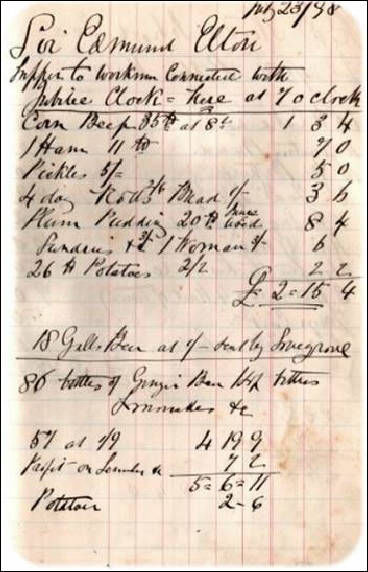 July 23/98
Sir Edmund Elton
Supper to Workmen Connected with
Jubilee Clock = Here at 7 o clock
Corn Beef 35 lb at 8d 1 3 4
1 Ham 11 lb 7 0
Pickles 5/- 5 0
4 doz Rolls 2/6 Bread 1/- 3 6
Plum Pudding 20 lb 8 4
Sundries &c 1 Woman 6
26 lb Potatoes 2/2 2 2
£ 2 = 15 4
18 Galls Beer at 1/- sent by Lovegrove
86 bottles of Ginger Beer bottles
Lemonades &c
57 at 1/9 4 19 9
Profit on 7 2
5 = 6 = 11
Potatoes 2 - 6